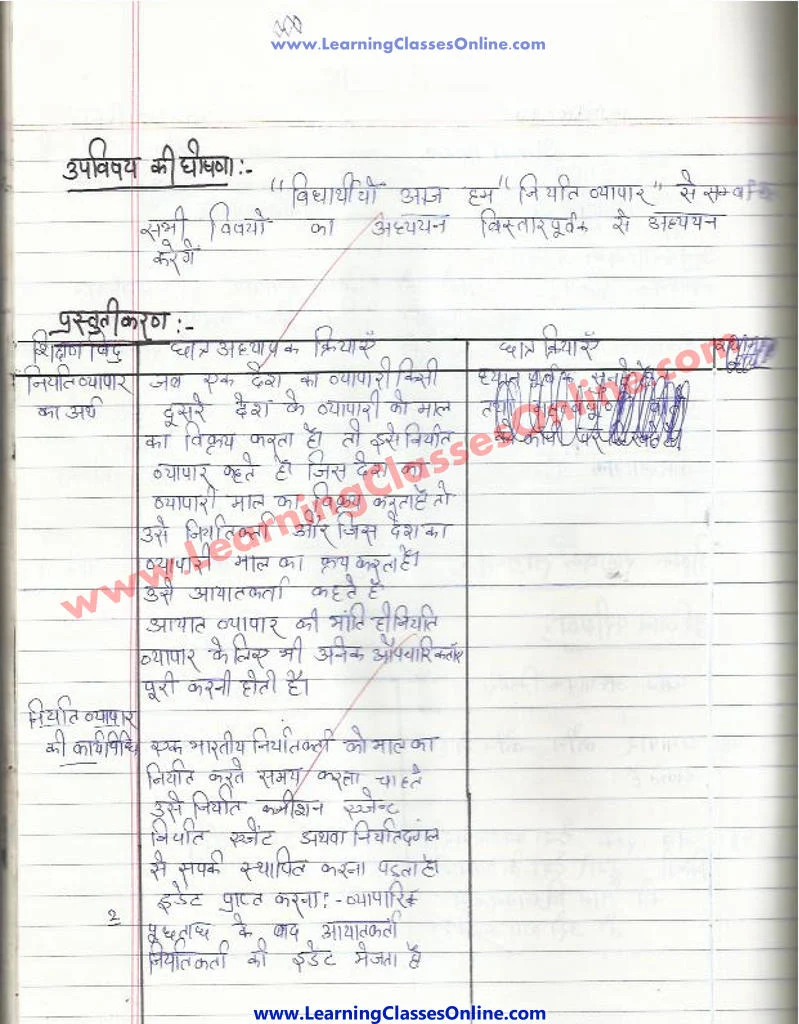 www.LearningClassesOnline.com
उपविषय की घोषणा:-
"विधार्थीयों आज हम "निर्यात व्यापार" से सम्बन्धित
सभी विषयों का अध्ययन विस्तारपूर्वक से अध्ययन
करेगें
प्रस्तुतीकरण:-
शिक्षण बिंदु छात्र अध्यापक क्रियाएँ छात्र क्रियाएँ
निर्यात व्यापार जब एक देश का व्यापारी किसी ध्यान पूर्वक सुनते है
का अर्थ दूसरे देश के व्यापारी को माल तथा
का विक्रय करता है। तो इसे निर्यात
व्यापार कहते है। जिस देश का
व्यापारी माल का विक्रय करता है तो
उसे निर्यातकर्ता और जिस देश का
व्यापारी माल का क्रय करता है।
उसे आयातकर्ता कहते है
आयात व्यापार की भांति ही निर्यात
व्यापार के लिए भी अनेक औपचारिकताएँ
पूरी करनी होती है।
निर्यात व्यापार
की कार्यविधि एक भारतीय निर्यातकर्ता को माल का
निर्यात करते समय करना चाहते
उसे निर्यात कमीशन एजेन्ट
निर्यात एजेंट अथवा
से सपर्क स्थापित करना पड़ता है।
इडेट प्राप्त करना:- व्यापारिक
2 पूछताछ के बाद आयातकर्ता
निर्यातकर्ता को इडेट भेजता है
www.LearningClassesOnline.com
www.LearningClassesOnline.com